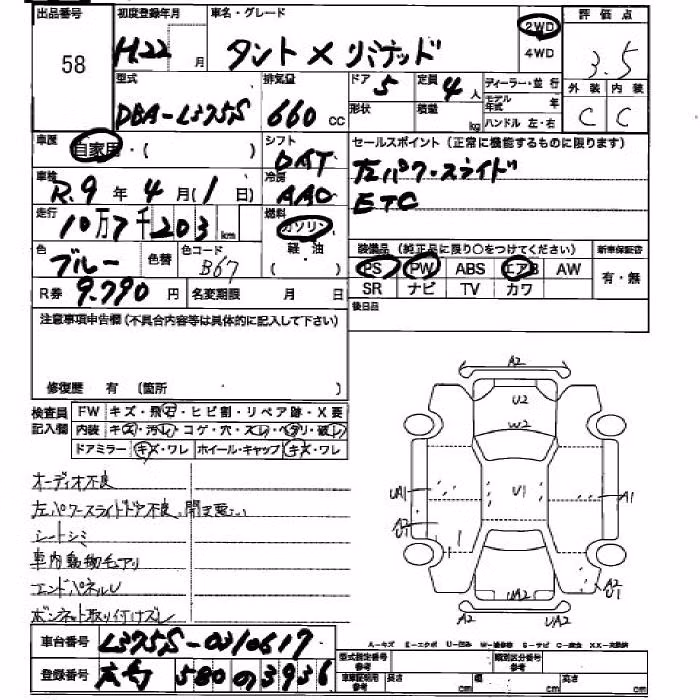 出品番号 初度登録年月 車名・グレード 評価点
58 H.22 月 タント X リミテッド 2WD 4WD 3.5
型式 排気量 ドア 定員 ディーラー・並行 外装 内装
DBA-L375S 660 cc 5 4 人 モデル年式 年 C C
形状 積載 kg ハンドル 左・右
車歴 自家用・( ) シフト セールスポイント(正常に機能するものに限ります)
DAT 左パワースライド
車検 R.9 年 4 月( 1 日) 冷房 AAC ETC
走行 10万7千203 km 燃料 ガソリン 軽・油 ( )
装備品(純正品に限り○をつけてください) 新車保証書
色 ブルー 色替 色コード B67
PS PW ABS エアB AW 有・無
R券 9.790 円 名変期限 月 日 SR ナビ TV カワ
後日品
注意事項申告欄(不具合内容等は具体的に記入して下さい)
修復歴 有 (箇所 )
検査員記入欄 FW キズ・飛石・ヒビ割・リペア跡・X要
内装 キズ・汚レ・コゲ・穴・スレ・ベタリ・破レ
ドアミラー キズ・ワレ ホイール・キャップ キズ・ワレ
オーディオ不良
左パワースライドドア不良、開き悪い
シートシミ
車内動物毛アリ
エンドパネルU
ボンネット取り付けズレ
A2
U2
W2
UA1 U1 A1
U1
A2 U1
UA2
A2 UA2
車台番号 L375S-0310617
登録番号 広島 580 の 3936
A-キズ E-エクボ U-凹み
型式指定番号 参考 類別区分番号 参考
車庫証明用 参考 長さ cm 幅 cm 高さ cm